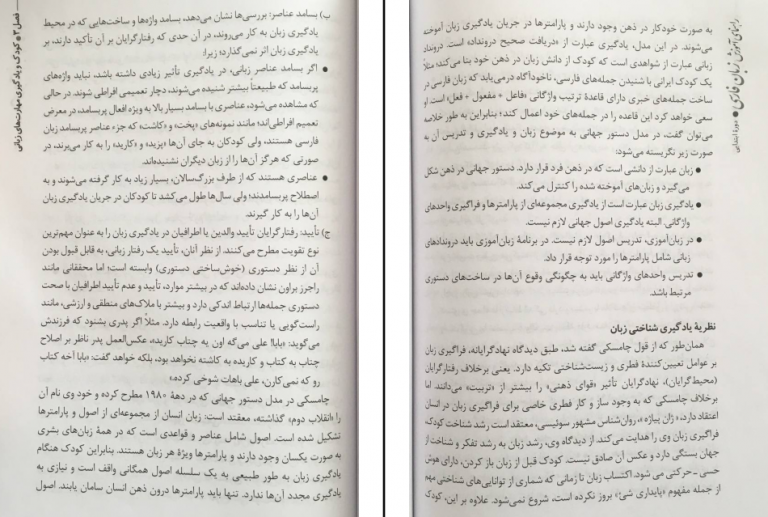 ب) بسامد عناصر: بررسی‌ها نشان می‌دهد، بسامد واژه‌ها و ساخت‌هایی که در محیط
یادگیری زبان به کار می‌روند، در آن حدی که رفتارگرایان بر آن تأکید دارند، بر
یادگیری زبان اثر نمی‌گذارد؛ زیرا:
● اگر بسامد عناصر زبانی، در یادگیری تأثیر زیادی داشته باشد، نباید واژه‌های
پربسامد که طبیعتاً بیشتر شنیده می‌شوند، دچار تعمیمی افراطی شوند. در حالی
که مشاهده می‌شود، عناصری با بسامد بالا به ویژه افعال پربسامد، در معرض
تعمیم افراطی‌اند؛ مانند نمونه‌های «پخت» و «کاشت» که جزء عناصر پربسامد زبان
فارسی هستند، ولی کودکان به جای آن‌ها «پزید» و «کارید» را به کار می‌برند، در
صورتی که هرگز آن‌ها را از زبان دیگران نشنیده‌اند.
● عناصری هستند که از طرف بزرگ‌سالان، بسیار زیاد به کار گرفته می‌شوند و به
اصطلاح پربسامدند؛ ولی سال‌ها طول می‌کشد تا کودکان در جریان یادگیری زبان
آن‌ها را به کار گیرند.
ج) تأیید: رفتارگرایان تأیید والدین یا اطرافیان در یادگیری زبان را به عنوان مهم‌ترین
نوع تقویت مطرح می‌کنند. از نظر آنان، تأیید یک رفتار زبانی، به قابل قبول بودن
آن از نظر دستوری (خوش‌ساختی دستوری) وابسته است؛ اما محققانی مانند
راجرز براون نشان داده‌اند که در بیشتر موارد، تأیید و عدم تأیید اطرافیان با صحت
دستوری جمله‌ها ارتباط اندکی دارد و بیشتر با ملاک‌های منطقی و ارزشی، مانند
راست‌گویی یا تناسب با واقعیت رابطه دارد. مثلاً اگر پدری بشنود که فرزندش
می‌گوید: «بابا! علی می‌گه اون یه چتاب کاریده»، عکس‌العمل پدر ناظر بر اصلاح
چتاب به کتاب و کاریده به کاشته نخواهد بود، بلکه خواهد گفت: «بابا آخه کتاب
رو که نمی‌کارن، علی باهات شوخی کرده.»
چامسکی در مدل دستور جهانی که در دههٔ ۱۹۸۰ مطرح کرده و خود وی نام آن
را «انقلاب دوم» گذاشته، معتقد است: زبان انسان از مجموعه‌ای از اصول و پارامترها
تشکیل شده است. اصول شامل عناصر و قواعدی است که در همهٔ زبان‌های بشری
به صورت یکسان وجود دارند و پارامترها ویژهٔ هر زبان هستند. بنابراین کودک هنگام
یادگیری زبان به طور طبیعی به یک سلسله اصول همگانی واقف است و نیازی به
یادگیری مجدد آن‌ها ندارد. تنها باید پارامترها درون ذهن انسان سامان یابند. اصول
فصل ۳ ● کودک و یادگیری مهارت‌های زبانی
راهنمای آموزش زبان فارسی ● دورهٔ ابتدایی
به صورت خودکار در ذهن وجود دارند و پارامترها در جریان یادگیری زبان آموخته
می‌شوند. در این مدل، یادگیری عبارت از «دریافت صحیح درونداد» است. درونداد
زبانی عبارت از شواهدی است که کودک از دانش زبان در ذهن خود بنا می‌کند؛ مثلاً
یک کودک ایرانی با شنیدن جمله‌های فارسی، ناخودآگاه درمی‌یابد که زبان فارسی در
ساخت جمله‌های خبری دارای قاعدهٔ ترتیب واژگانی «فاعل + مفعول + فعل» است. او
سعی خواهد کرد این قاعده را در جمله‌های خود اعمال کند؛ بنابراین به طور خلاصه
می‌توان گفت، در مدل دستور جهانی به موضوع زبان و یادگیری و تدریس آن به
صورت زیر نگریسته می‌شود:
● زبان عبارت از دانشی است که در ذهن فرد قرار دارد. دستور جهانی در ذهن شکل
می‌گیرد و زبان‌های آموخته شده را کنترل می‌کند.
● یادگیری زبان عبارت است از یادگیری مجموعه‌ای از پارامترها و فراگیری واحدهای
واژگانی. البته یادگیری اصول جهانی لازم نیست.
● در زبان‌آموزی، تدریس اصول لازم نیست. در برنامهٔ زبان‌آموزی باید دروندادهای
زبانی شامل پارامترها را مورد توجه قرار داد.
● تدریس واحدهای واژگانی باید به چگونگی وقوع آن‌ها در ساخت‌های دستوری
مرتبط باشد.
نظریهٔ یادگیری شناختی زبان
همان‌طور که از قول چامسکی گفته شد، طبق دیدگاه نهادگرایانه، فراگیری زبان
بر عوامل تعیین‌کنندهٔ فطری و زیست‌شناختی تکیه دارد. یعنی برخلاف رفتارگرایان
(محیط‌گرایان)، نهادگرایان تأثیر «قوای ذهنی» را بیشتر از «تربیت» می‌دانند. اما
برخلاف چامسکی که به وجود ساز و کار فطری خاصی برای فراگیری زبان در انسان
اعتقاد دارد، «ژان پیاژه»، روان‌شناس مشهور سوئیسی، معتقد است رشد شناخت کودک،
فراگیری زبان وی را هدایت می‌کند. از دیدگاه وی، رشد زبان به رشد تفکر و شناخت از
جهان بستگی دارد و عکس آن صادق نیست. کودک قبل از زبان باز کردن، دارای هوش
حسی ـ حرکتی می شود. اکتساب زبان تا زمانی که شماری از توانایی‌های شناختی مهم
از جمله مفهوم «پایداری شئ» بروز نکرده است، شروع نمی‌شود. علاوه بر این، کودک